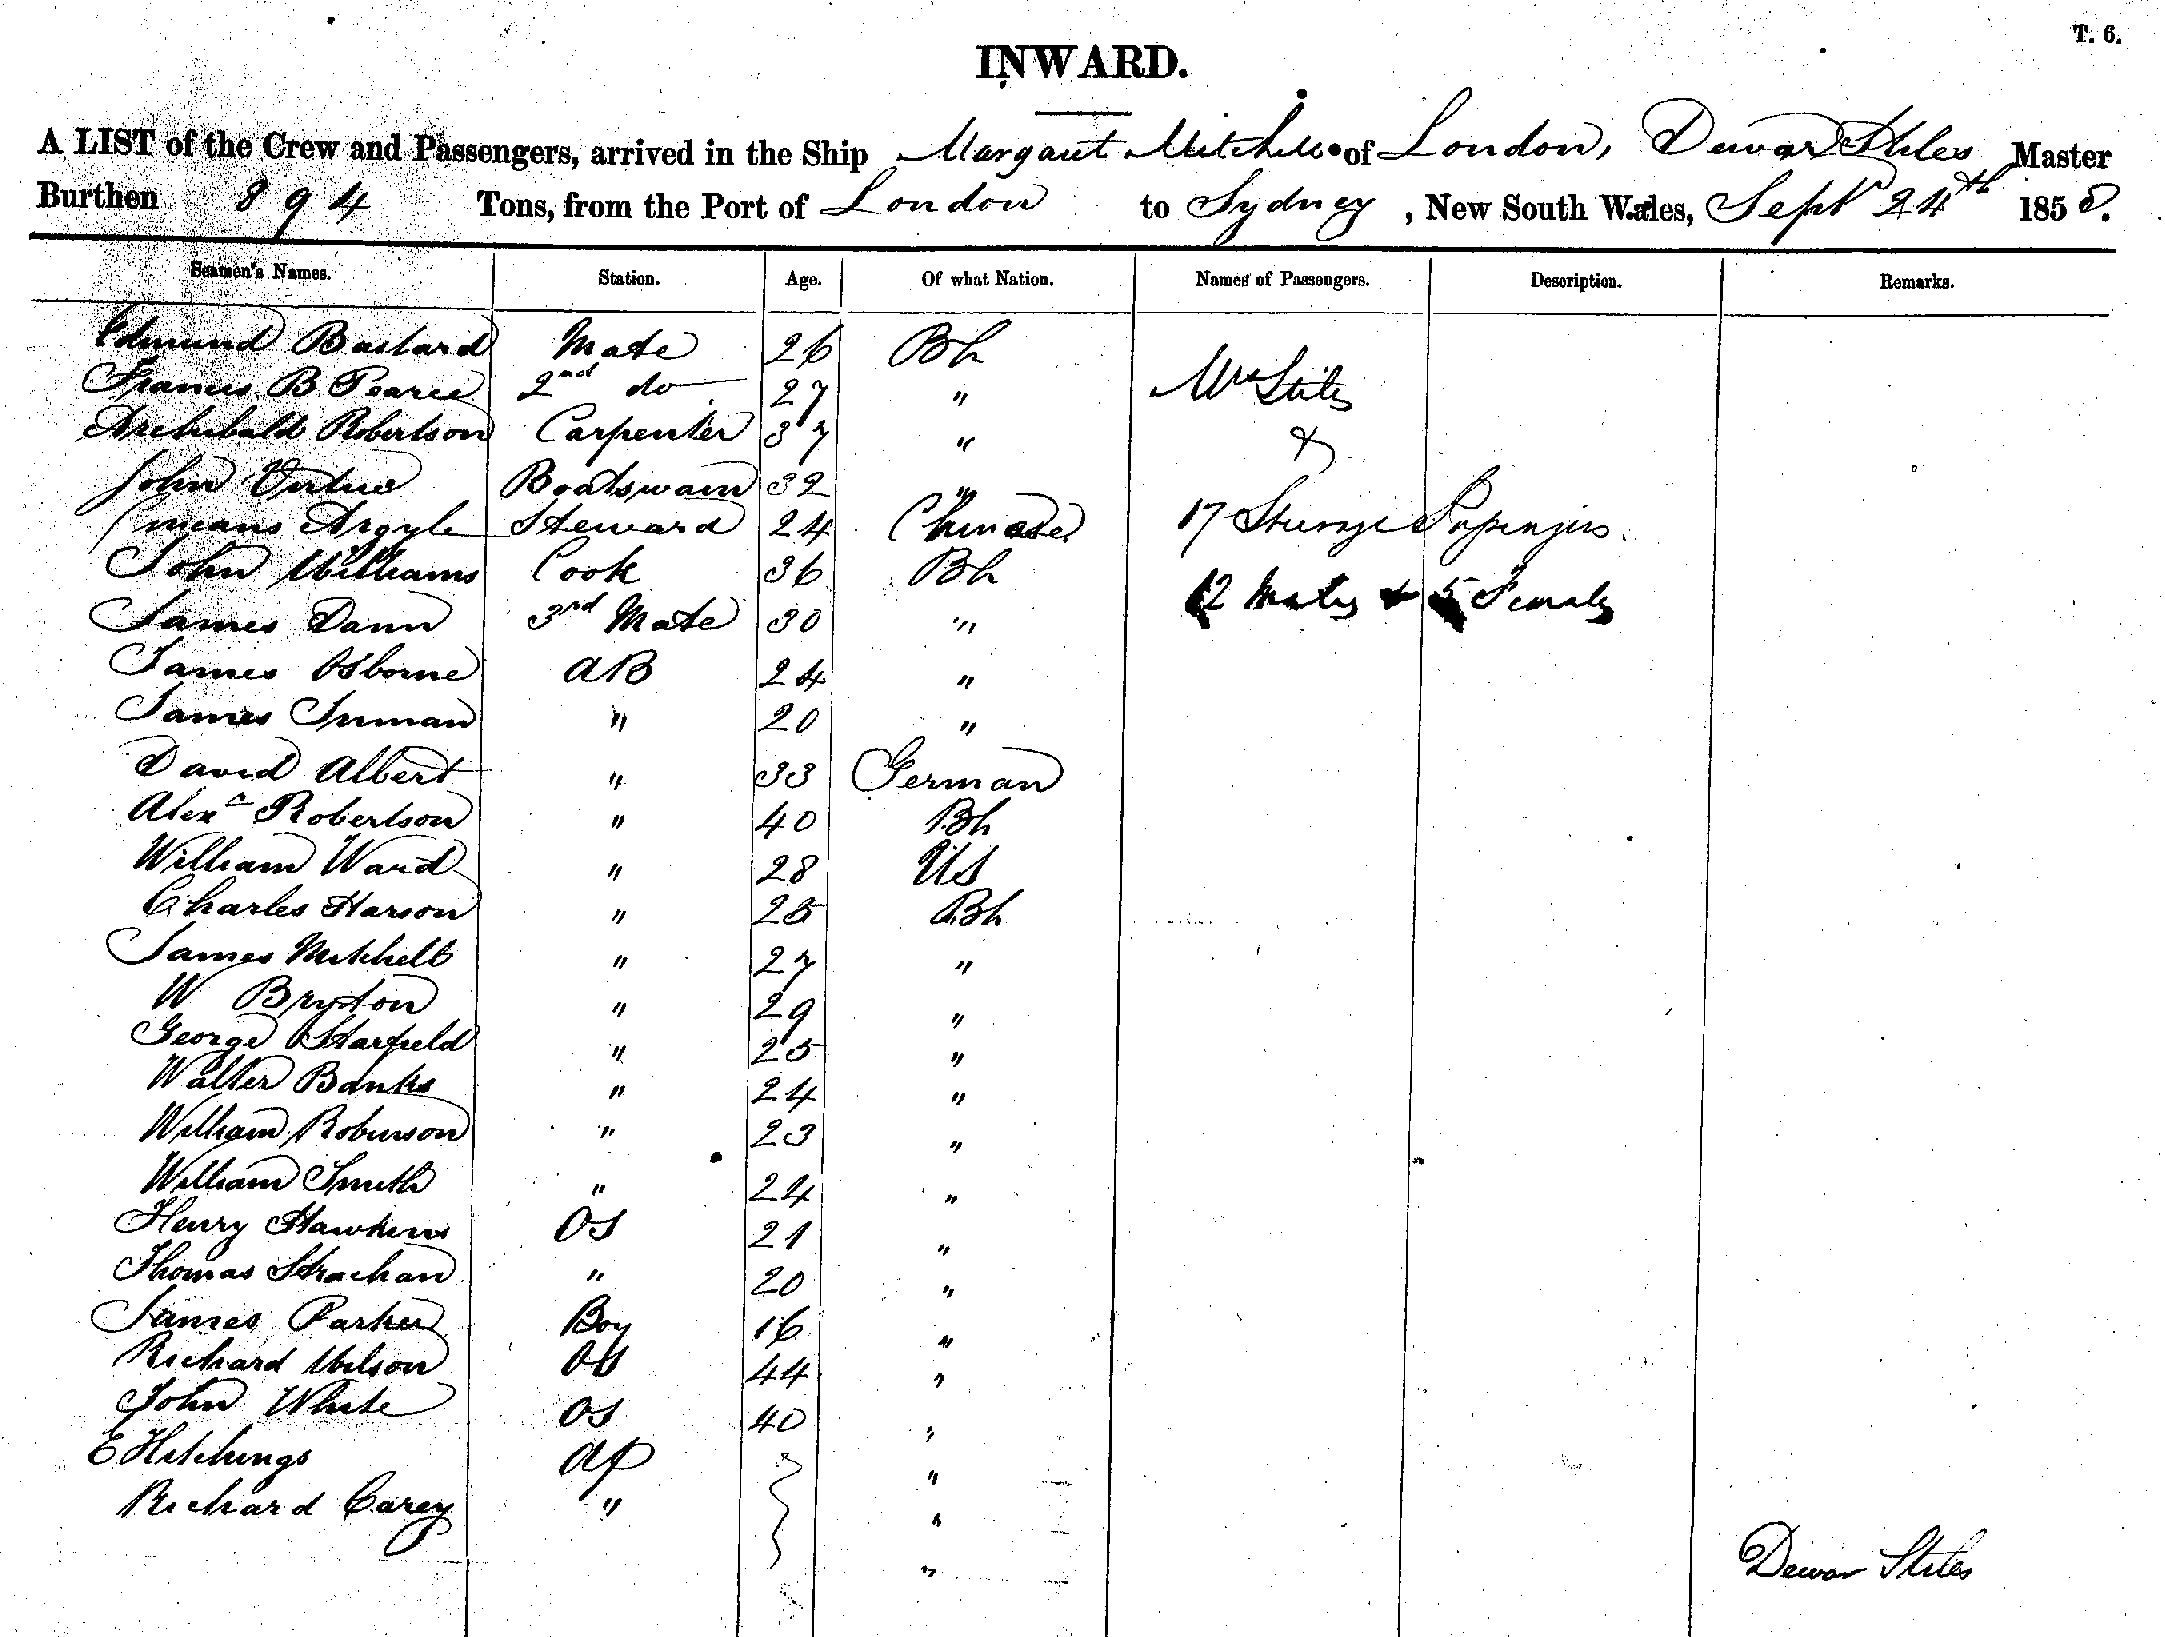 T. 6.
INWARD.
A LIST of the Crew and Passengers, arrived in the Ship Margaret Mitchell of London, Dewar Stiles Master
Burthen 894 Tons, from the Port of London to Sydney, New South Wales, Sept 24th 185
Seamen's Names. Station. Age. Of what Nation. Names of Passengers. Description. Remarks.
Edmund Bastard Mate 26 Bh
Francis B Pearce 2nd do 27 " Mrs Stiles
Archibald Robertson Carpenter 37 " &
John Virtue Boatswain 32 "
Argyle Steward 24 Chinese 17 Steerage Passengers
John Williams Cook 36 Bh
James Dann 3rd Mate 30 " 12 Males & 5 Females
James Osborne AB 24 "
James Inman " 20 "
David Albert " 33 German
Alexr Robertson " 40 Bh
William Ward " 28 US
Charles Harson " 25 Bh
James Mitchell " 27 "
W Bryton " 29 "
George Harfield " 25 "
Walter Banks " 24 "
William Robinson " 23 "
William Smith " 24 "
Henry Hawkins OS 21 "
Thomas Strachan " 20 "
James Parker Boy 16 "
Richard Wilson 44 "
John White OS 40 "
E Hitchings Ap "
Richard Carey " "
"
Dewar Stiles